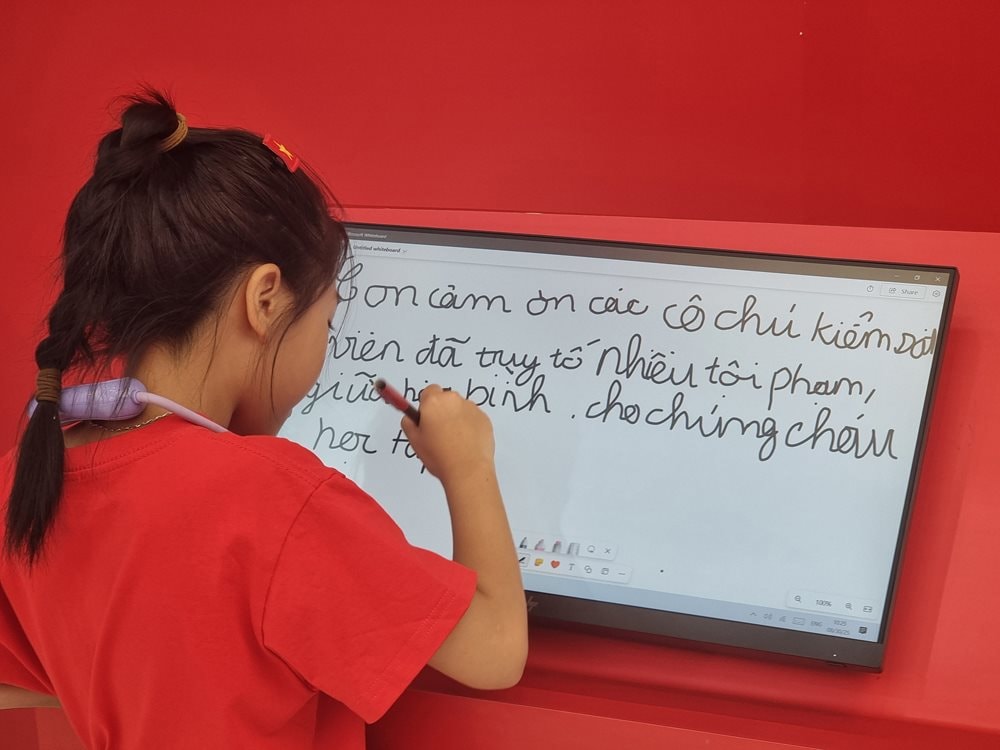 Microsoft Whiteboard
Untitled whiteboard
Share
Con cảm ơn các cô chú kiểm sát
viên đã truy tố nhiều tội phạm,
giữ bình . cho chúng cháu
học
T
100%
ENG